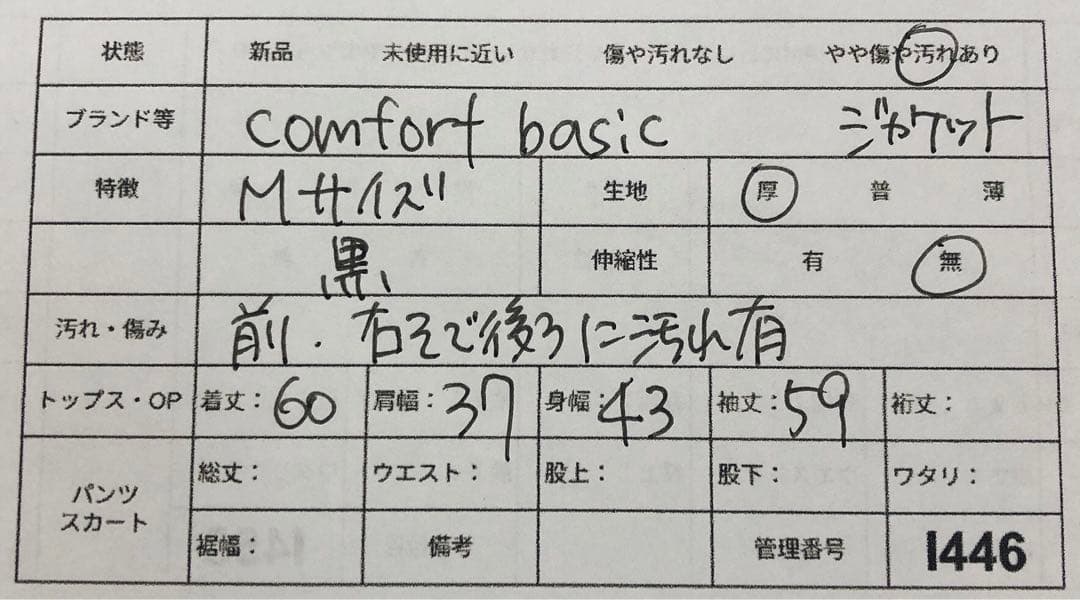 状態 新品 未使用に近い 傷や汚れなし やや傷や汚れあり
ブランド等 comfort basic ジャケット
特徴 Mサイズ 生地 厚 普 薄
黒 伸縮性 有 無
汚れ・傷み 前.右そで後ろに汚れ有
トップス・OP 着丈:60 肩幅:37 身幅:43 袖丈:59 裄丈:
パンツ スカート 総丈: ウエスト: 股上: 股下: ワタリ:
裾幅: 備考 管理番号 I446